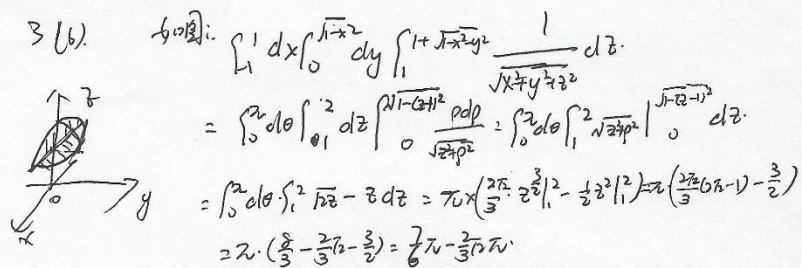 3 (6). 如图: ∫_{-1}^{1} dx ∫_0^{√(1-x²)} dy ∫_1^{1+√(1-x²-y²)} 1/√(x²+y²+z²) dz.
= ∫_0^π dθ ∫_1^2 dz ∫_0^{√(1-(z-1)²)} ρdρ/√(z²+ρ²) = ∫_0^π dθ ∫_1^2 √(z²+ρ²) |_0^{√(1-(z-1)²)} dz.
= ∫_0^π dθ · ∫_1^2 √(2z) - z dz = π × (2√2/3 · z^{3/2}|_1^2 - 1/2 z²|_1^2) = π · (2√2/3 (2√2-1) - 3/2)
= π · (8/3 - 2/3 √2 - 3/2) = 7/6 π - 2/3 √2 π.
z
0
y
x